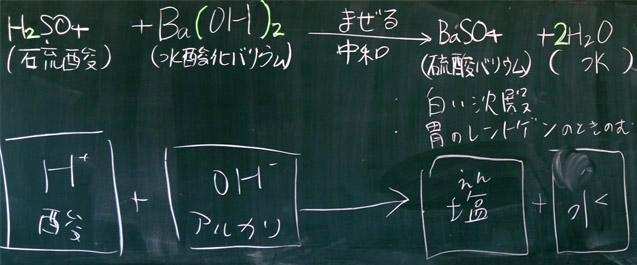 H₂SO₄ + Ba(OH)₂ まぜる 中和 → BaSO₄ + 2H₂O
(硫酸) (水酸化バリウム) (硫酸バリウム) (水)
白い沈殿
・胃のレントゲンのときのむ
H⁺ 酸 + OH⁻ アルカリ → えん 塩 + 水